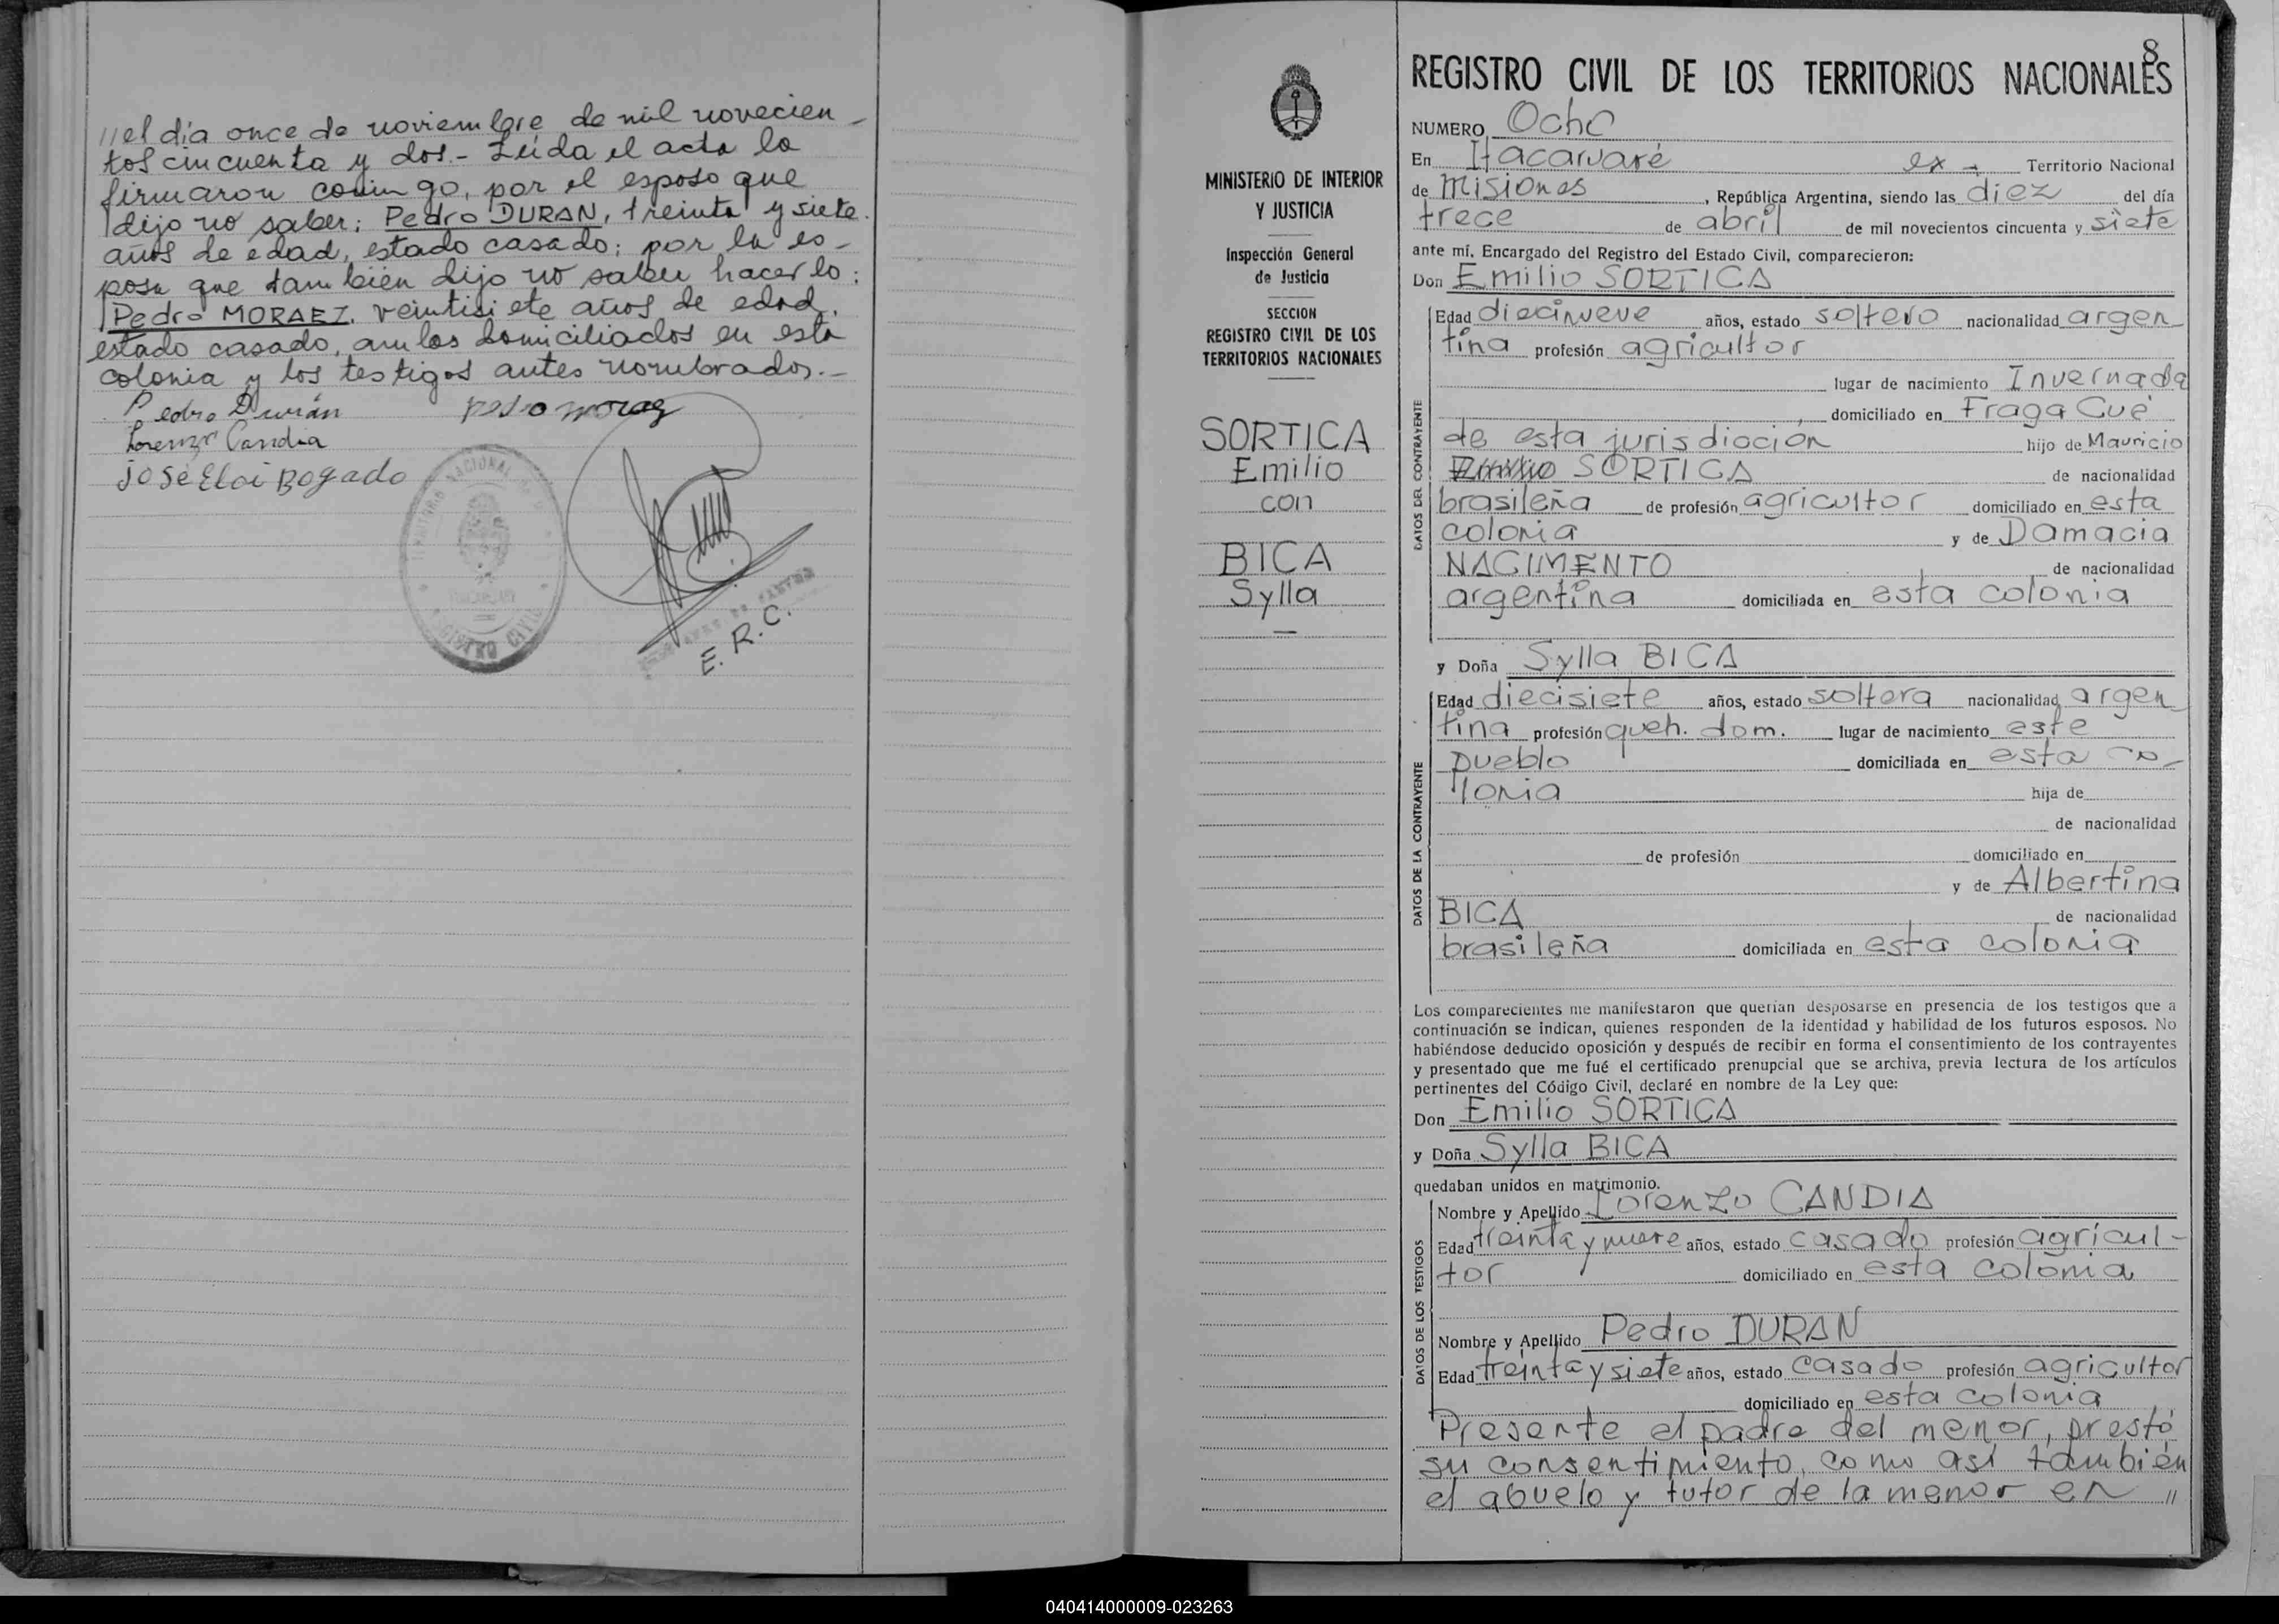 //el día once de noviembre de mil novecien-
tos cincuenta y dos.- Leída el acta la
firmaron conmigo, por el esposo que
dijo no saber: Pedro DURAN, treinta y siete
años de edad, estado casado; por la es-
posa que también dijo no saber hacerlo:
Pedro MORAEZ, veintisiete años de edad,
estado casado, ambos domiciliados en esta
colonia y los testigos antes nombrados.-
Pedro Durán pedro moraez
Lorenzo Candia
José Eloi Bogado
REGISTRO CIVIL
E. R. C.
8
MINISTERIO DE INTERIOR
Y JUSTICIA
Inspección General
de Justicia
SECCION
REGISTRO CIVIL DE LOS
TERRITORIOS NACIONALES
SORTICA
Emilio
con
BICA
Sylla
REGISTRO CIVIL DE LOS TERRITORIOS NACIONALES
NUMERO Ocho
En Itacaruaré ex - Territorio Nacional
de Misiones, República Argentina, siendo las diez del día
trece de abril de mil novecientos cincuenta y siete
ante mí, Encargado del Registro del Estado Civil, comparecieron:
Don Emilio SORTICA
DATOS DEL CONTRAYENTE
Edad diecinueve años, estado soltero nacionalidad argen
tina profesión agricultor
lugar de nacimiento Invernada
domiciliado en Fraga Cué
de esta jurisdicción hijo de Mauricio
Emilio SORTICA de nacionalidad
brasileña de profesión agricultor domiciliado en esta
colonia y de Damacia
NACIMENTO de nacionalidad
argentina domiciliada en esta colonia
y Doña Sylla BICA
DATOS DE LA CONTRAYENTE
Edad diecisiete años, estado soltera nacionalidad argen
tina profesión queh. dom. lugar de nacimiento este
pueblo domiciliada en esta co-
lonia hija de
de nacionalidad
de profesión domiciliado en
y de Albertina
BICA de nacionalidad
brasileña domiciliada en esta colonia
Los comparecientes me manifestaron que querian desposarse en presencia de los testigos que a
continuación se indican, quienes responden de la identidad y habilidad de los futuros esposos. No
habiéndose deducido oposición y después de recibir en forma el consentimiento de los contrayentes
y presentado que me fué el certificado prenupcial que se archiva, previa lectura de los artículos
pertinentes del Código Civil, declaré en nombre de la Ley que:
Don Emilio SORTICA
y Doña Sylla BICA
quedaban unidos en matrimonio.
DATOS DE LOS TESTIGOS
Nombre y Apellido Lorenzo CANDIA
Edad treinta y nueve años, estado casado profesión agricul-
tor domiciliado en esta colonia
Nombre y Apellido Pedro DURAN
Edad treinta y siete años, estado casado profesión agricultor
domiciliado en esta colonia
Presente el padre del menor, prestó
su consentimiento, como así también
el abuelo y tutor de la menor en //
040414000009-023263